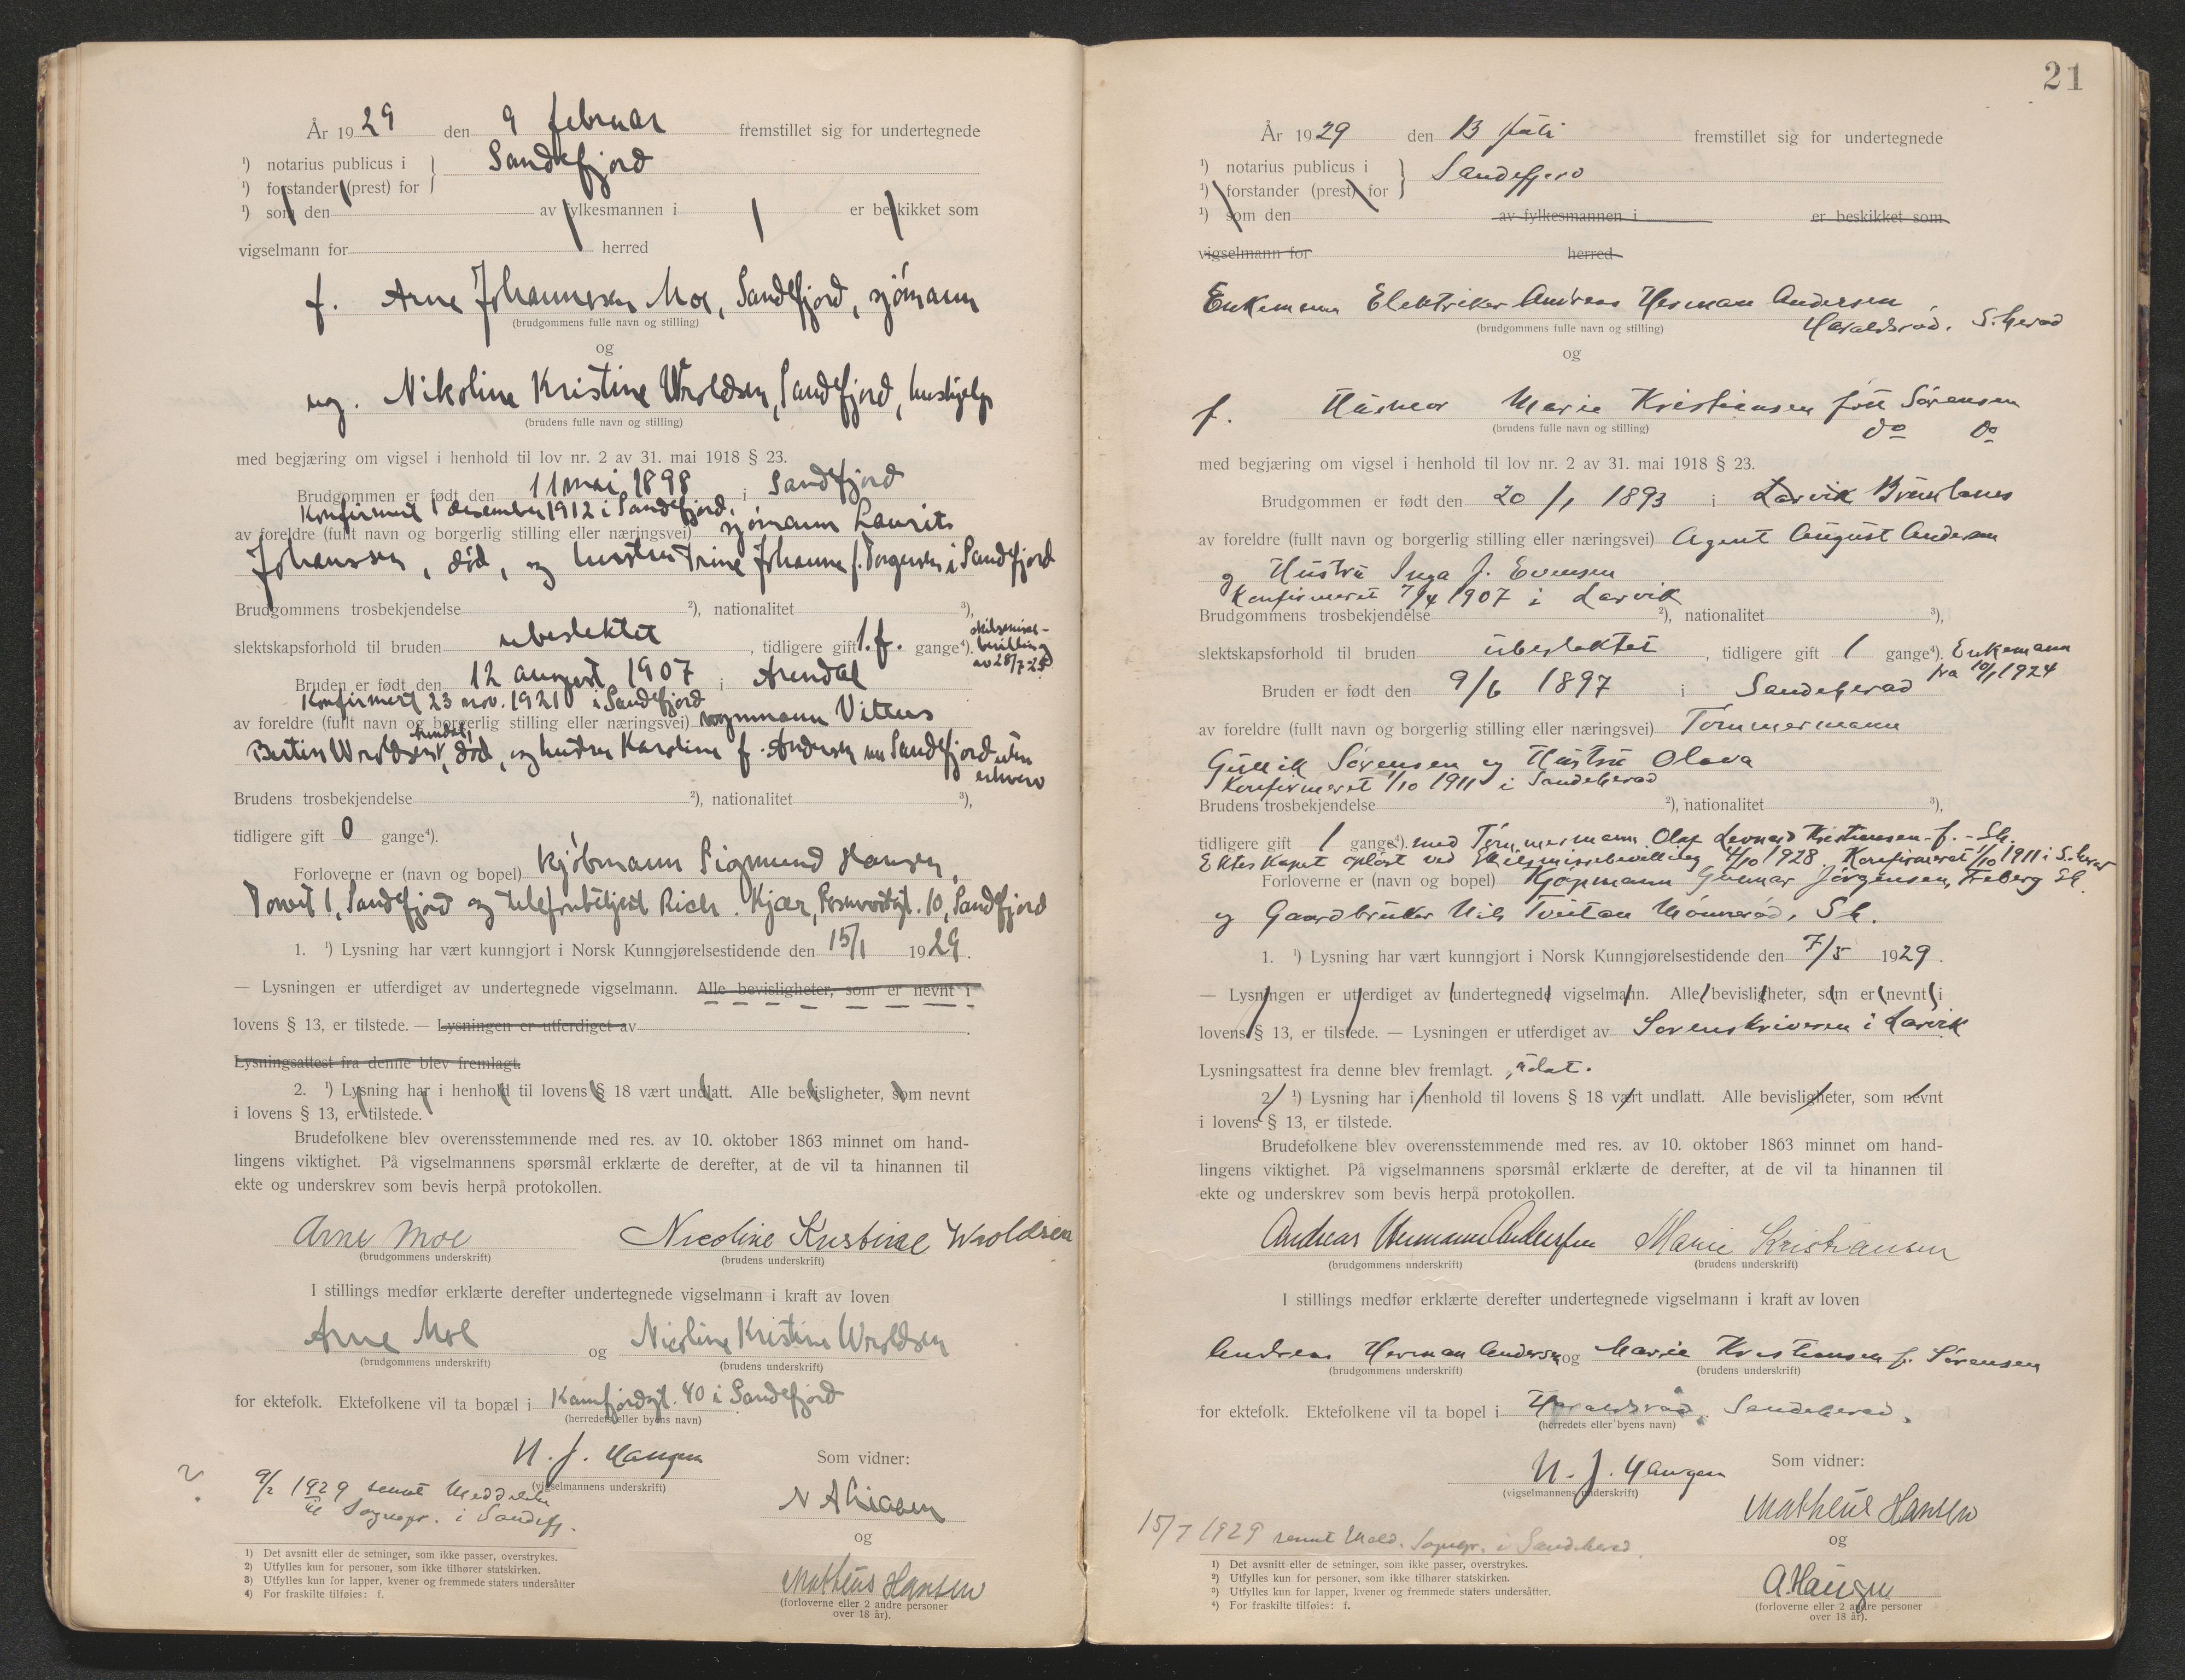 År 1929 den 9 februar fremstillet sig for undertegnede
¹) notarius publicus i } Sandefjord
¹) forstander (prest) for
¹) som den av fylkesmannen i er beskikket som
vigselmann for herred
f. Arne Johannesen Moe, Sandefjord, sjømann
(brudgommens fulle navn og stilling)
og
ug. Nikoline Kristine Wroldsen, Sandefjord, hushjelp
(brudens fulle navn og stilling)
med begjæring om vigsel i henhold til lov nr. 2 av 31. mai 1918 § 23.
Brudgommen er født den 11 mai 1898 i Sandefjord
Konfirmert 1 desember 1912 i Sandefjord.
av foreldre (fullt navn og borgerlig stilling eller næringsvei) sjømann Laurits
Johanssen, død, og hustru Trine Johanne f. Torgersen i Sandefjord
Brudgommens trosbekjendelse ²), nationalitet ³),
slektskapsforhold til bruden ubeslektet, tidligere gift 1. f. gange⁴). skilsmisse-
bevilling
av 28/7-25
Bruden er født den 12 august 1907 i Arendal
Konfirmert 23 nov. 1921 i Sandefjord
av foreldre (fullt navn og borgerlig stilling eller næringsvei) vognmann Vitus
Bertin Wroldsen, Arendal, død, og hustru Karoline f. Andersen nu Sandefjord uten
erhverv
Brudens trosbekjendelse ²), nationalitet ³),
tidligere gift 0 gange⁴).
Forloverne er (navn og bopel) Kjøbmann Sigmund Hansen,
1, Sandefjord og Rich. Kjær, 10, Sandefjord
1. ¹) Lysning har vært kunngjort i Norsk Kunngjørelsestidende den 15/1 1929.
— Lysningen er utferdiget av undertegnede vigselmann. Alle bevisligheter, som er nevnt i
lovens § 13, er tilstede. — Lysningen er utferdiget av
Lysningsattest fra denne blev fremlagt.
2. ¹) Lysning har i henhold til lovens § 18 vært undlatt. Alle bevisligheter, som nevnt
i lovens § 13, er tilstede.
Brudefolkene blev overensstemmende med res. av 10. oktober 1863 minnet om hand-
lingens viktighet. På vigselmannens spørsmål erklærte de derefter, at de vil ta hinannen til
ekte og underskrev som bevis herpå protokollen.
Arne Moe Nicoline Kristine Wroldsen
(brudgommens underskrift) (brudens underskrift)
I stillings medfør erklærte derefter undertegnede vigselmann i kraft av loven
Arne Moe og Nicoline Kristine Wroldsen
(brudgommens underskrift) (brudens underskrift)
for ektefolk. Ektefolkene vil ta bopæl i Kamfjordgt. 40 i Sandefjord
(herredets eller byens navn)
N. J. Haugen Som vidner:
(vigselmannens underskrift)
9/2 1929 sendt Meddelelse
til Sognepr. i Sandefj.
og
Matheus Hansen
(forloverne eller 2 andre personer
over 18 år).
1) Det avsnitt eller de setninger, som ikke passer, overstrykes.
2) Utfylles kun for personer, som ikke tilhører statskirken.
3) Utfylles kun for lapper, kvener og fremmede staters undersåtter
4) For fraskilte tilføies: f.
21
År 1929 den 13 Juli fremstillet sig for undertegnede
¹) notarius publicus i } Sandefjord
¹) forstander (prest) for
¹) som den av fylkesmannen i er beskikket som
vigselmann for herred
Enkemann Elektriker Andreas Herman Andersen
(brudgommens fulle navn og stilling) Haraldsrød. S.herad
og
f. Husmor Marie Kristiansen født Sørensen
(brudens fulle navn og stilling) do do
med begjæring om vigsel i henhold til lov nr. 2 av 31. mai 1918 § 23.
Brudgommen er født den 20/1 1893 i Larvik Brunlanes
av foreldre (fullt navn og borgerlig stilling eller næringsvei) Agent August Andersen
og Hustru Inga f. Evensen
Konfirmeret 7/4 1907 i Larvik
Brudgommens trosbekjendelse ²), nationalitet ³),
slektskapsforhold til bruden ubeslektet, tidligere gift 1 gange⁴). Enkemann
fra 10/1 1924
Bruden er født den 9/6 1897 i Sandeherad
av foreldre (fullt navn og borgerlig stilling eller næringsvei) Tømmermann
Gullik Sørensen og Hustru Olava
Konfirmeret 1/10 1911 i Sandeherad
Brudens trosbekjendelse ²), nationalitet ³),
tidligere gift 1 gange⁴). med Tømmermann Olaf Leonard Kristiansen. f. - Sh.
Ekteskapet opløst ved Skilsmissebevilling 4/10 1928. Konfirmeret 1/10 1911 i S.herad
Forloverne er (navn og bopel) Kjøpmann Gunnar Jørgensen, Freberg Sh.
og Gaardbruker Nils Tveitan Mønnerød, Sh.
1. ¹) Lysning har vært kunngjort i Norsk Kunngjørelsestidende den 7/5 1929.
— Lysningen er utferdiget av undertegnede vigselmann. Alle bevisligheter, som er nevnt i
lovens § 13, er tilstede. — Lysningen er utferdiget av Sorenskriveren i Larvik
Lysningsattest fra denne blev fremlagt. udat.
2. ¹) Lysning har i henhold til lovens § 18 vært undlatt. Alle bevisligheter, som nevnt
i lovens § 13, er tilstede.
Brudefolkene blev overensstemmende med res. av 10. oktober 1863 minnet om hand-
lingens viktighet. På vigselmannens spørsmål erklærte de derefter, at de vil ta hinannen til
ekte og underskrev som bevis herpå protokollen.
Andreas Hermann Andersen Marie Kristiansen
(brudgommens underskrift) (brudens underskrift)
I stillings medfør erklærte derefter undertegnede vigselmann i kraft av loven
Andreas Herman Andersen og Marie Kristiansen f. Sørensen
(brudgommens underskrift) (brudens underskrift)
for ektefolk. Ektefolkene vil ta bopel i Haraldsrød, Sandeherad.
(herredets eller byens navn)
N. J. Haugen Som vidner:
(vigselmannens underskrift)
Matheus Hansen
15/7 1929 sendt Medd. Sognepr. i Sandeherad.
og
A. Haugen
(forloverne eller 2 andre personer
over 18 år).
1) Det avsnitt eller de setninger, som ikke passer, overstrykes.
2) Utfylles kun for personer, som ikke tilhører statskirken.
3) Utfylles kun for lapper, kvener og fremmede staters undersåtter.
4) For fraskilte tilføies: f.